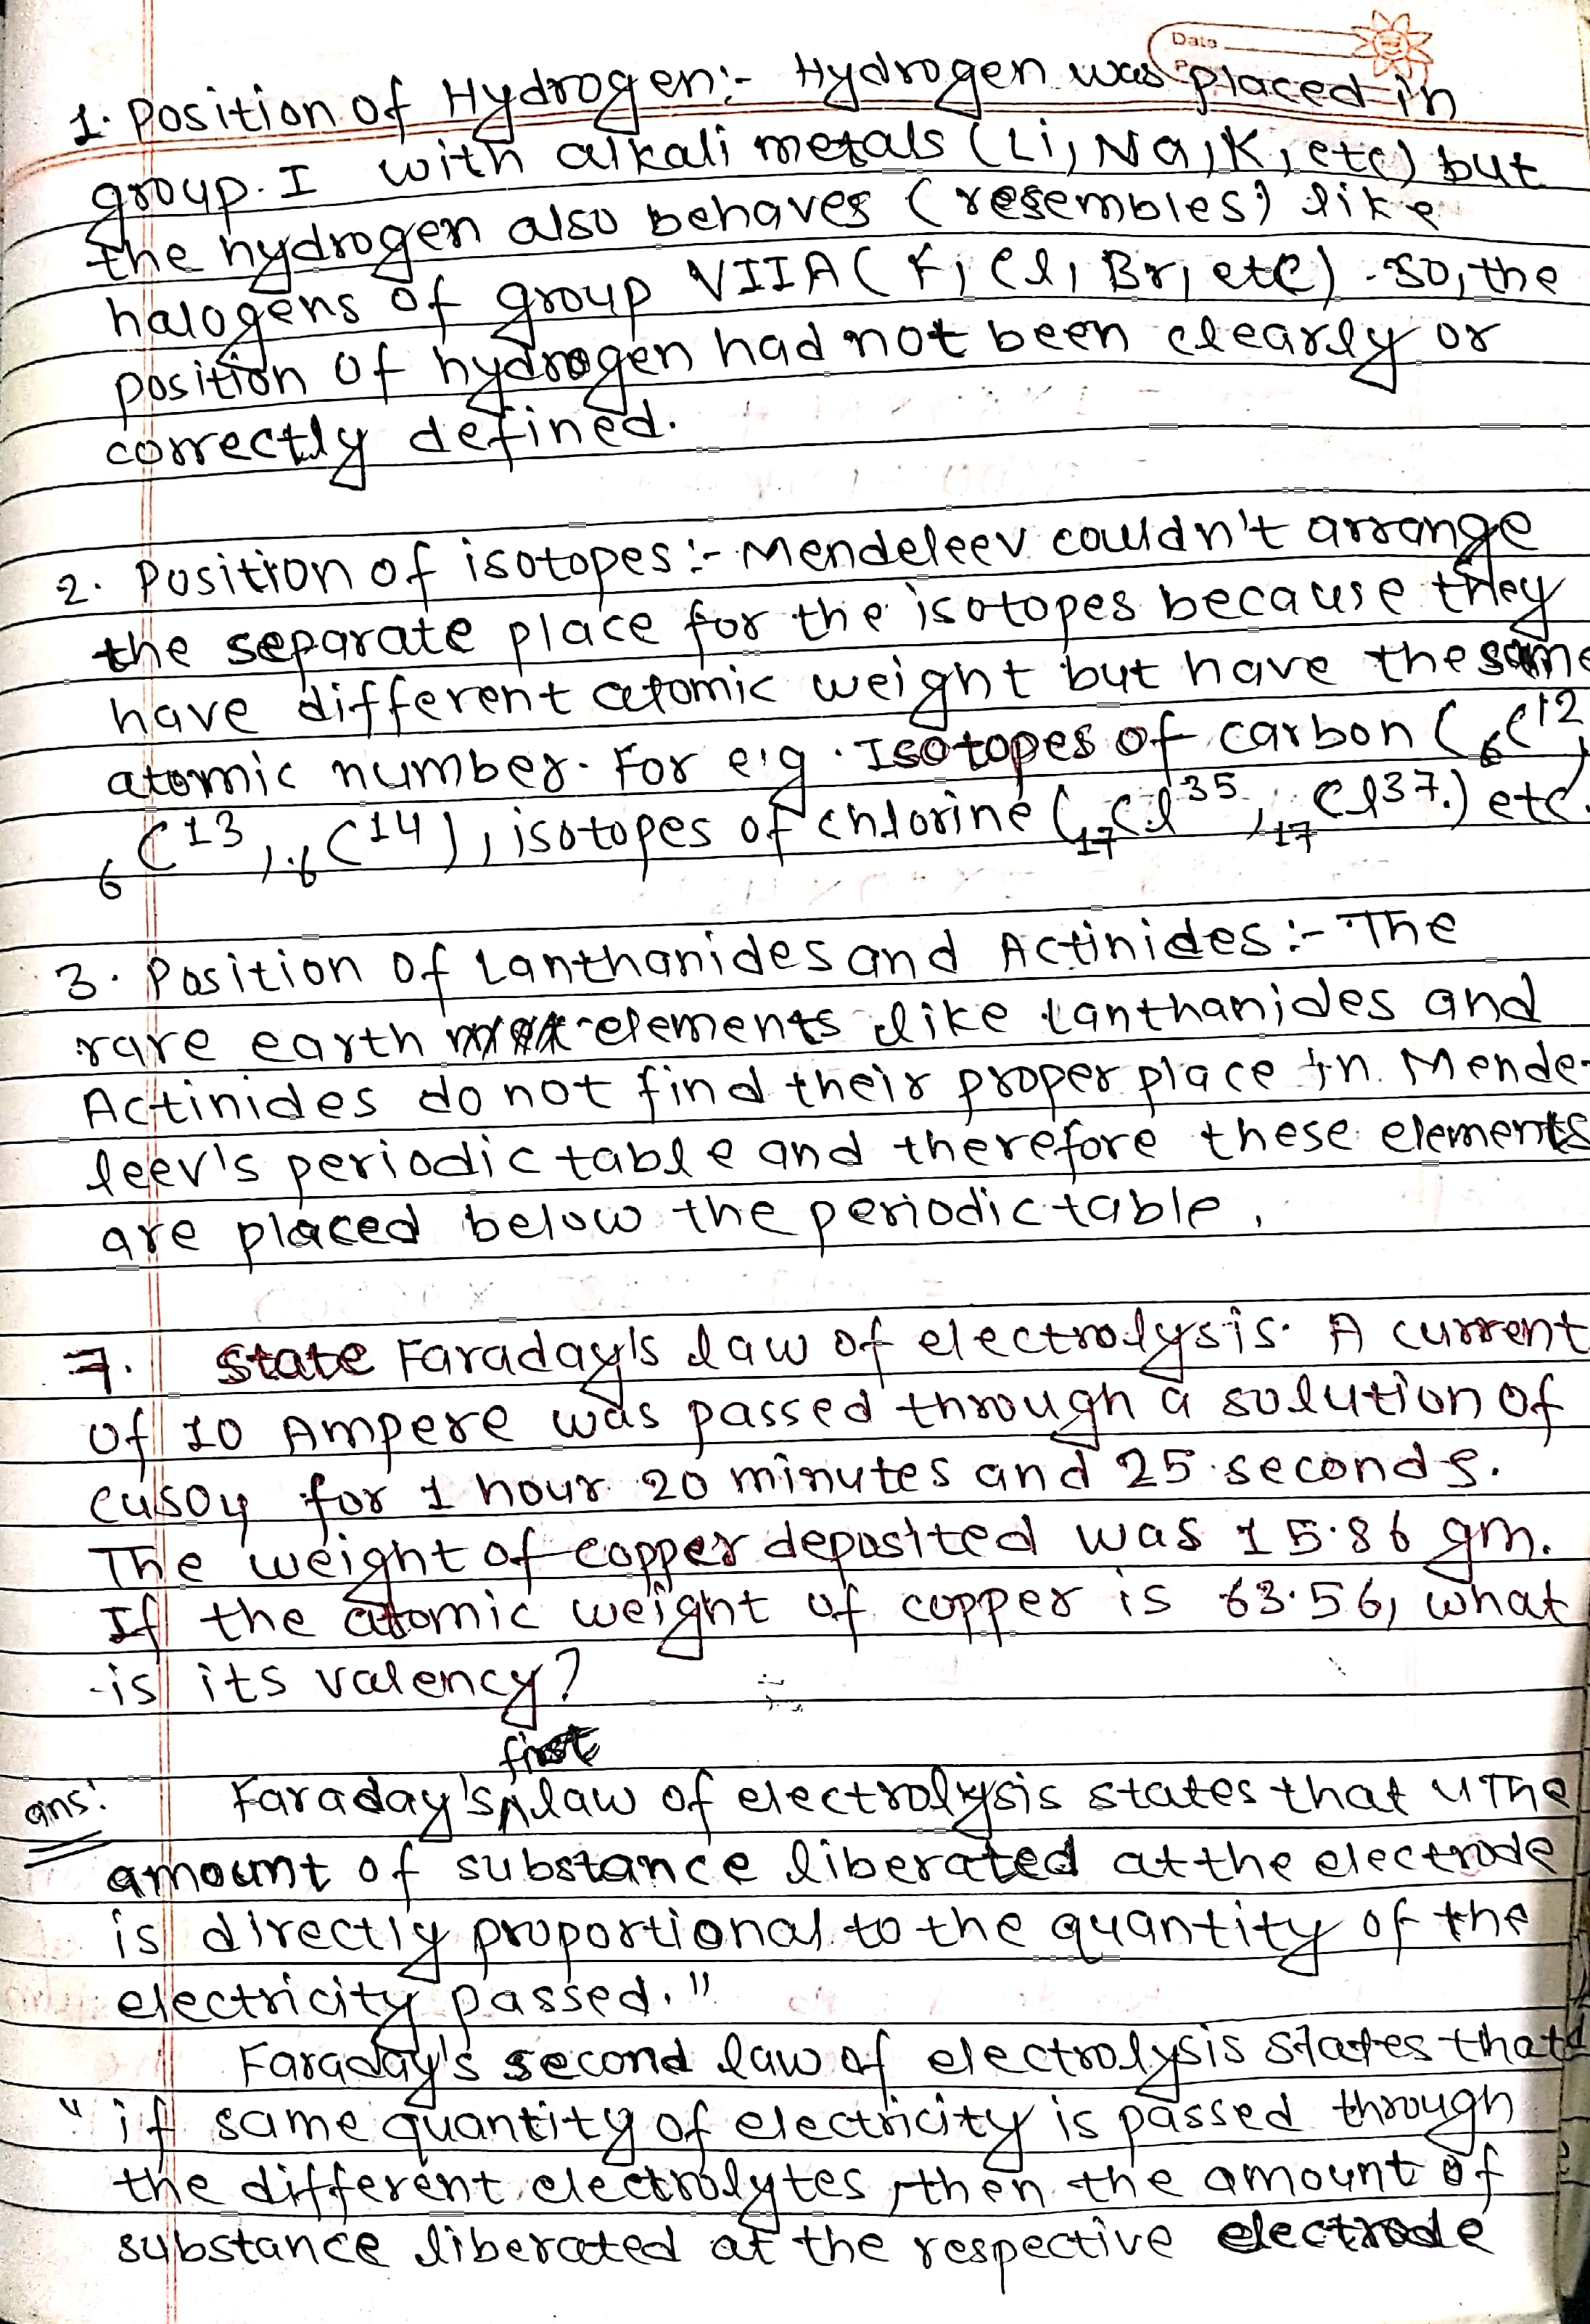 Date
1. Position of Hydrogen:- Hydrogen was placed in
group I with alkali metals (Li, Na, K, etc) but
the hydrogen also behaves (resembles) like
halogens of group VIIA (F, Cl, Br, etc). So, the
position of hydrogen had not been clearly or
correctly defined.
2. Position of isotopes:- Mendeleev couldn't arrange
the separate place for the isotopes because they
have different atomic weight but have the same
atomic number. For e.g. Isotopes of carbon (₆C¹²,
₆C¹³, ₆C¹⁴), isotopes of chlorine (₁₇Cl³⁵, ₁₇Cl³⁷.) etc.
3. Position of Lanthanides and Actinides:- The
rare earth elements like Lanthanides and
Actinides do not find their proper place in Mende-
leev's periodic table and therefore these elements
are placed below the periodic table.
7. State Faraday's law of electrolysis. A current
of 10 Ampere was passed through a solution of
CuSO4 for 1 hour 20 minutes and 25 seconds.
The weight of copper deposited was 15.86 gm.
If the atomic weight of copper is 63.56, what
is its valency?
first
ans: Faraday's law of electrolysis states that "The
amount of substance liberated at the electrode
is directly proportional to the quantity of the
electricity passed."
Faraday's second law of electrolysis states that
"if same quantity of electricity is passed through
the different electrolytes, then the amount of
substance liberated at the respective electrode